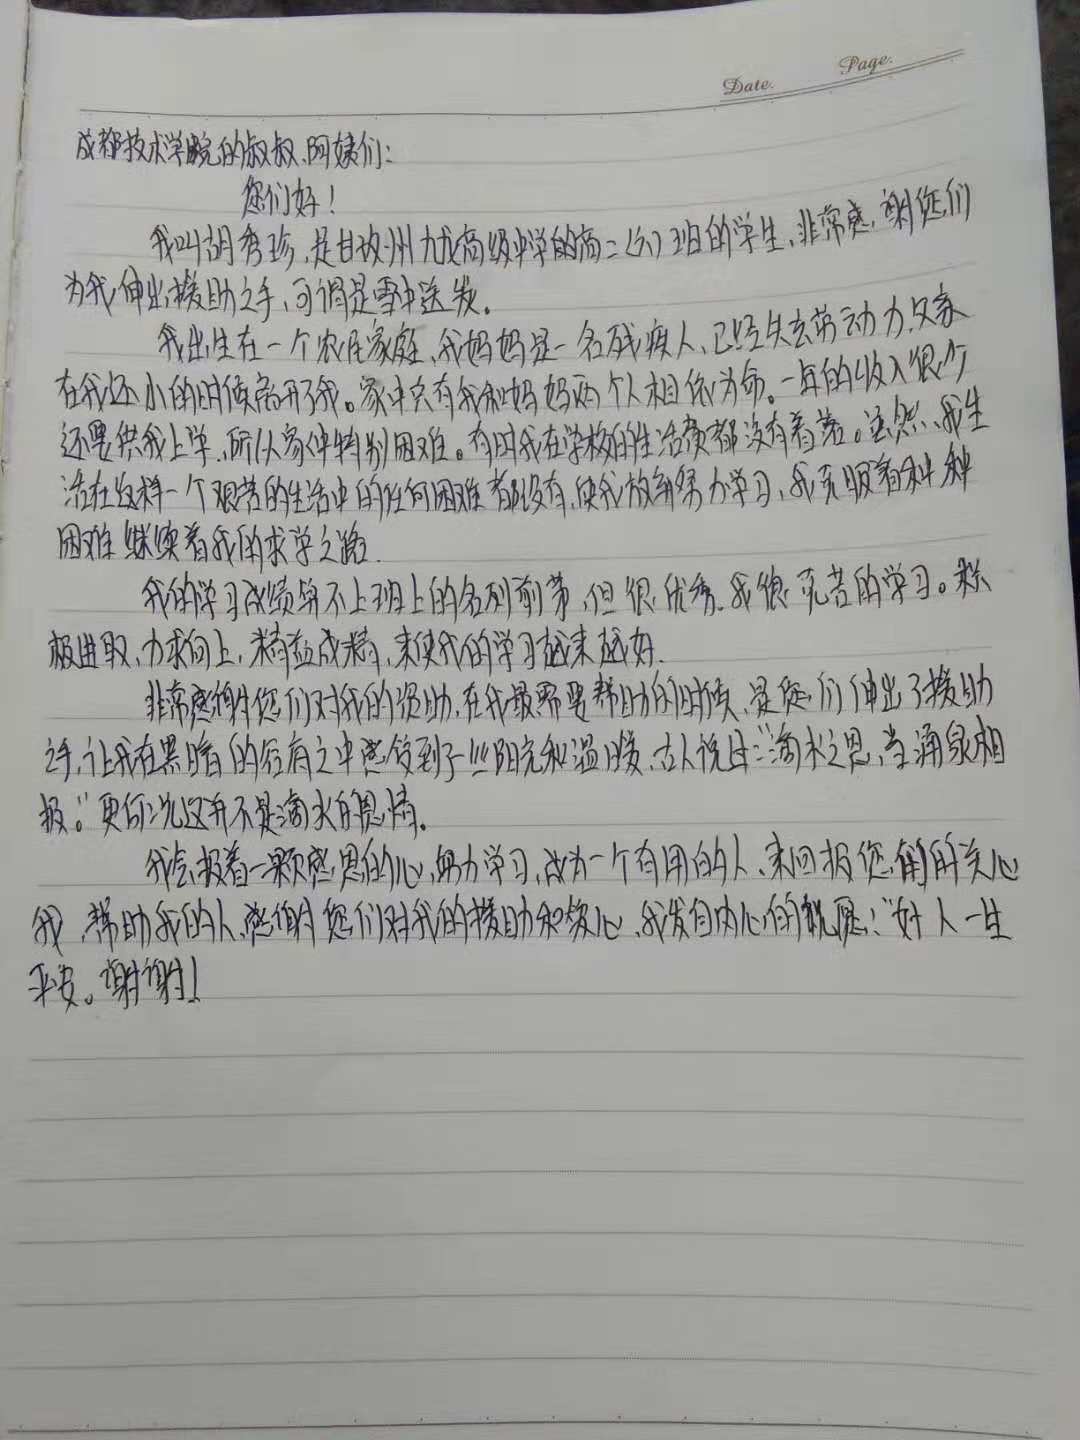 Date.
Page.
成都技术学院的叔叔、阿姨们：
您们好！
我叫胡秀珍，是甘孜州九龙高级中学的高二（六）班的学生，非常感谢您们
为我伸出援助之手，可谓是雪中送炭。
我出生在一个农民家庭，我妈妈是一名残疾人，已经失去劳动力，父亲
在我还小的时候离开了我。家中只有我和妈妈两个人相依为命。一年的收入很少
还要供我上学，所以家中特别困难。有时我在学校的生活费都没有着落。虽然，我生
活在这样一个艰苦的生活中的任何困难都没有，使我放弃努力学习，我克服着种种
困难继续着我的求学之路.
我的学习成绩算不上班上的名列前茅，但很优秀，我很克苦的学习。积
极进取，力求向上，精益成精，来使我的学习越来越好.
非常感谢您们对我的资助，在我最需要帮助的时候，是您们伸出了援助
之手，让我在黑暗的之中感受到了一丝阳光和温暖，古人说过：“滴水之恩，当涌泉相
报。”更何况这并不是滴水的恩情。
我会报着一颗感恩的心，努力学习，成为一个有用的人，来回报您们的关心
我，帮助我的人，感谢您们对我的援助和关心，我发自内心的祝愿：“好人一生
平安。谢谢！